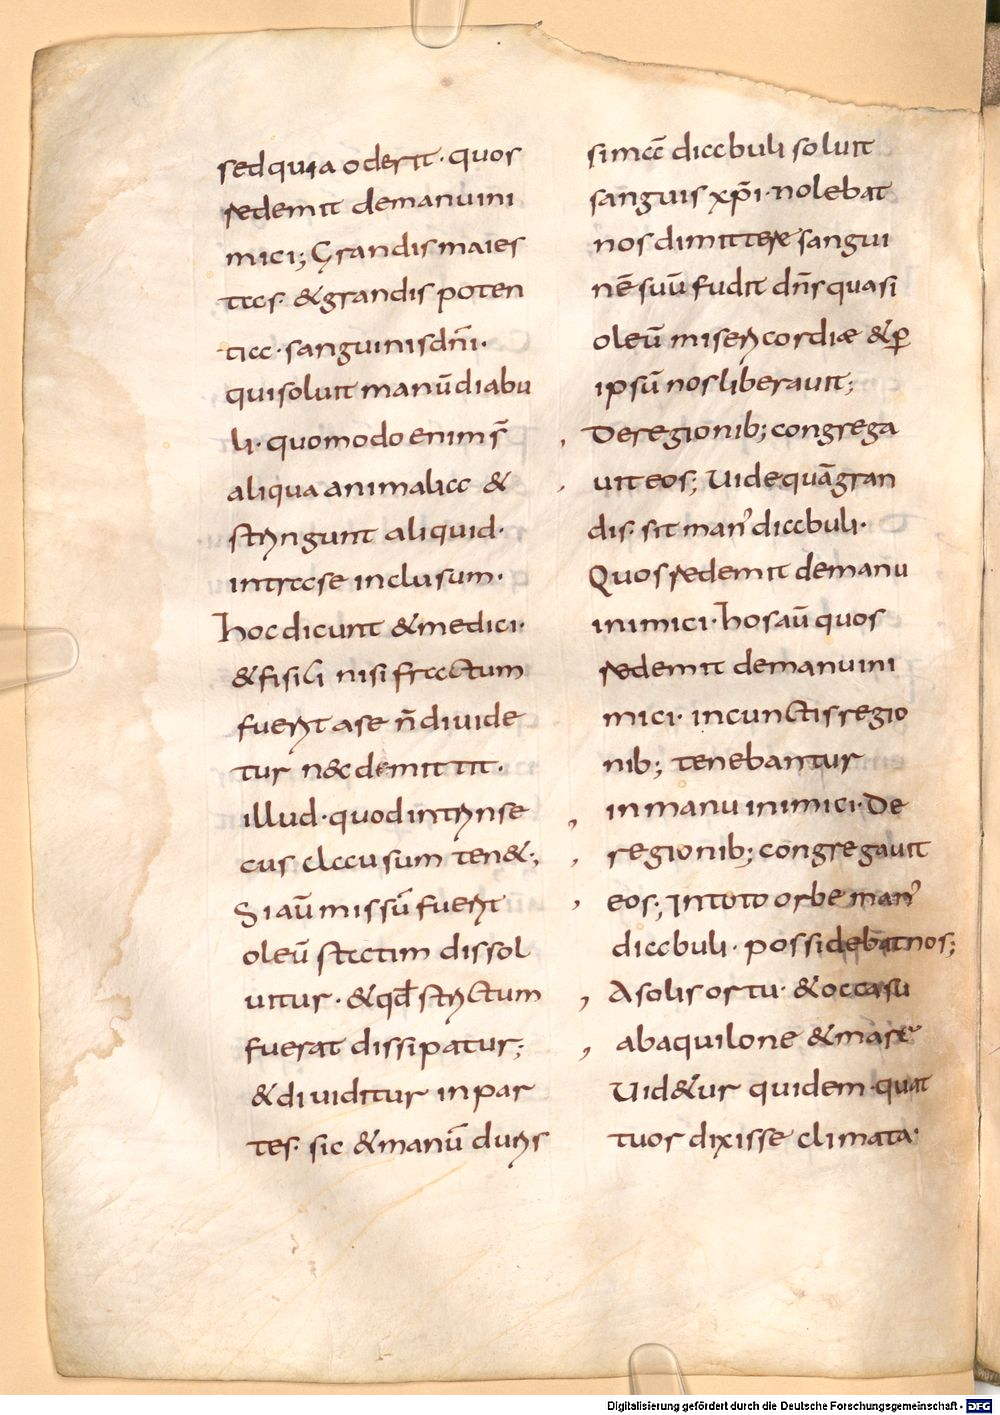 sedquia oderit· quos
redemit demanuini
mici; Grandis maies
tas· &grandis poten
tia· sanguinisdn̄i·
quisoluit manūdiabu
li· quomodo enim s̄
aliqua animalia &
stringunt aliquid·
intrase inclusum·
hoc dicunt &medici·
&fisici nisi fractum
fuerit ase n̄ diuide
tur n&c demittit·
illud· quod intrinse
cus clausum ten&;
Si aū missū fuerit
oleū statim dissol
uitur· &qđ strictum
fuerat dissipatur;
&diuiditur in par
tes· sic &manū duris
simā diabuli soluit
sanguis xp̄i· nolebat
nos dimittere sangui
nē suū fudit dn̄s quasi
oleū misericordiæ &ꝑ
ipsū nos liberauit;
Deregionib; congrega
uit eos; Uide quā gran
dis· sit man' diabuli·
Quos redemit demanu
inimici· hos aū quos
redemit demanuini
mici· incunctis regio
nib; tenebantur
inmanu inimici· De
regionib; congregauit
eos; Intoto orbe man'
diabuli· possidebat nos;
A solis ortu· &occasu
abaquilone &mare
Uid&ur quidem· quat
tuor dixisse climata·
Digitalisierung gefördert durch die Deutsche Forschungsgemeinschaft - DFG